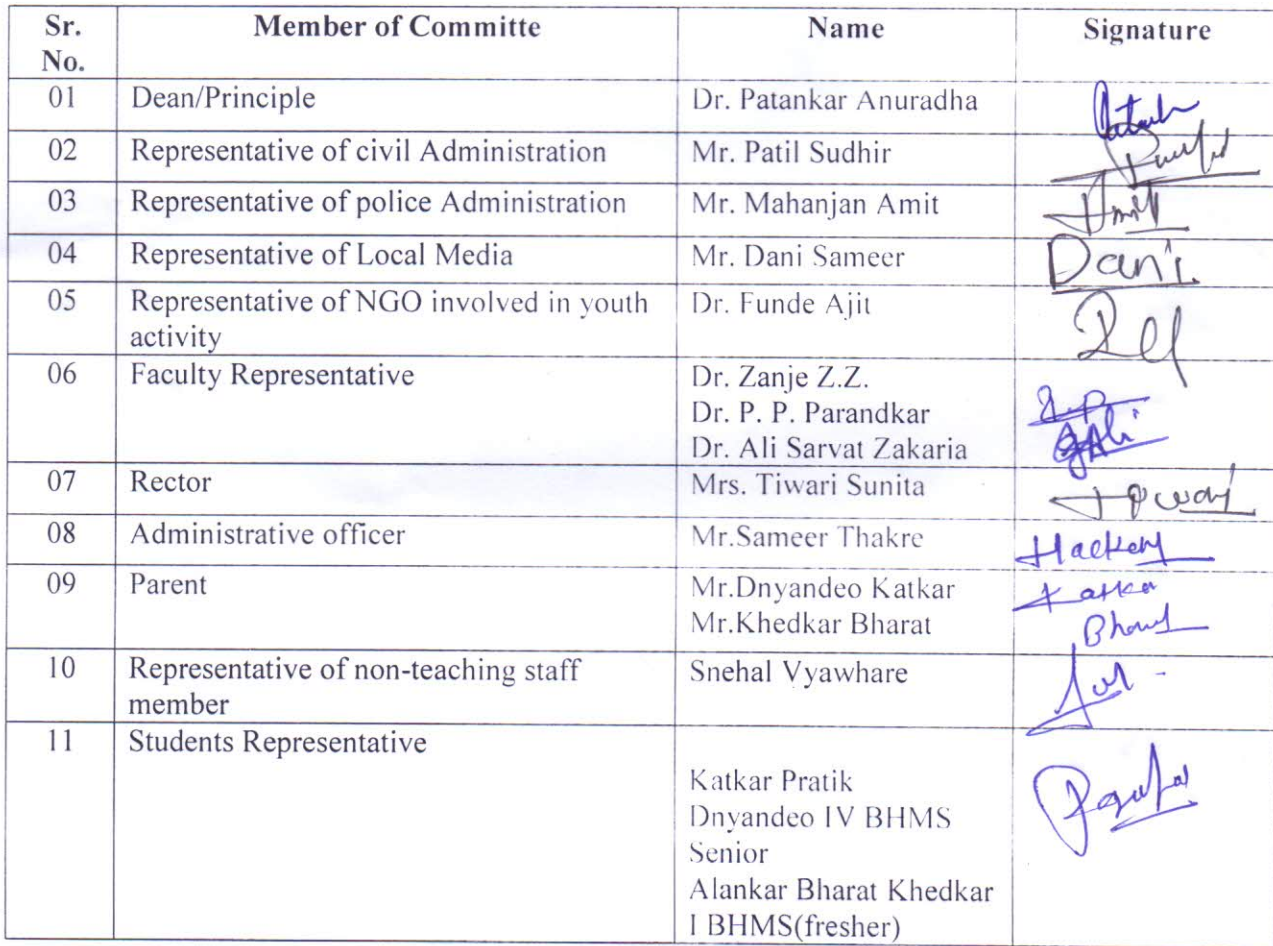 Sr. No. Member of Committe Name Signature
01 Dean/Principle Dr. Patankar Anuradha
02 Representative of civil Administration Mr. Patil Sudhir
03 Representative of police Administration Mr. Mahanjan Amit Amit
04 Representative of Local Media Mr. Dani Sameer Dani
05 Representative of NGO involved in youth Dr. Funde Ajit
activity
06 Faculty Representative Dr. Zanje Z.Z.
Dr. P. P. Parandkar
Dr. Ali Sarvat Zakaria
07 Rector Mrs. Tiwari Sunita
08 Administrative officer Mr.Sameer Thakre
09 Parent Mr.Dnyandeo Katkar
Mr.Khedkar Bharat
10 Representative of non-teaching staff Snehal Vyawhare
member
11 Students Representative
Katkar Pratik
Dnyandeo IV BHMS
Senior
Alankar Bharat Khedkar
I BHMS(fresher)